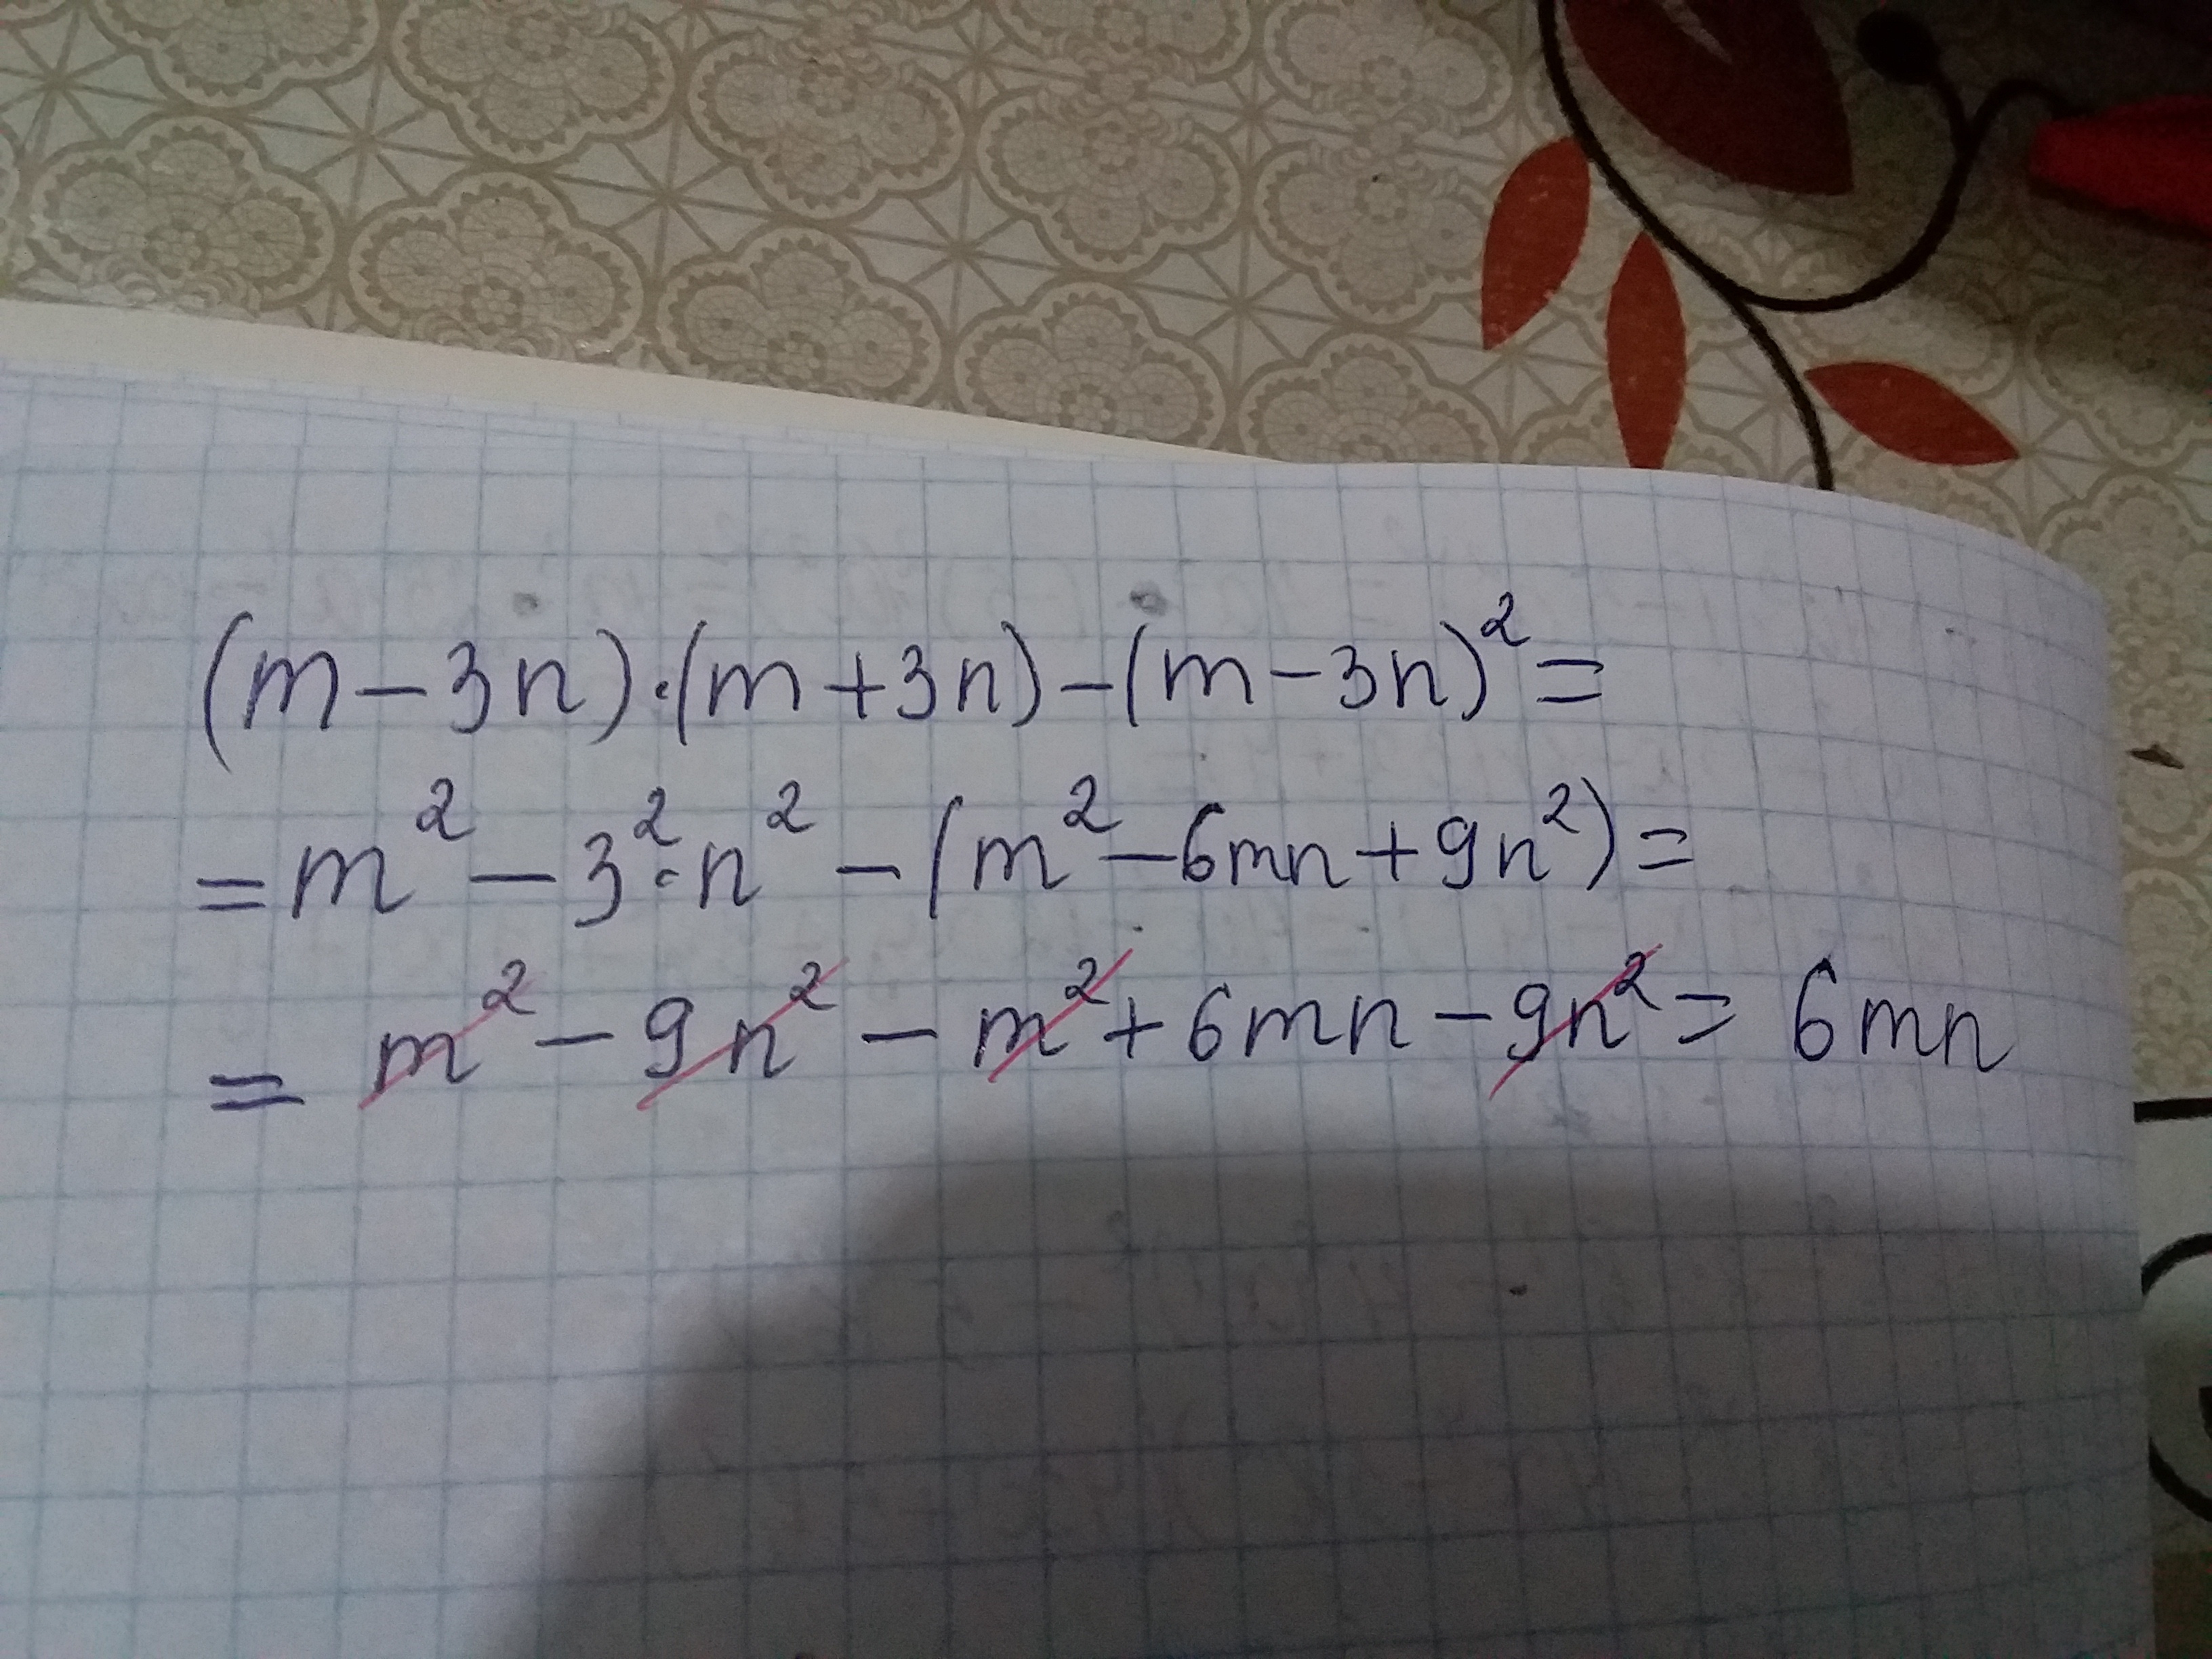 (m-3n)·(m+3n)-(m-3n)²=
=m²-3²·n²-(m²-6mn+9n²)=
=m²-9n²-m²+6mn-9n²=6mn